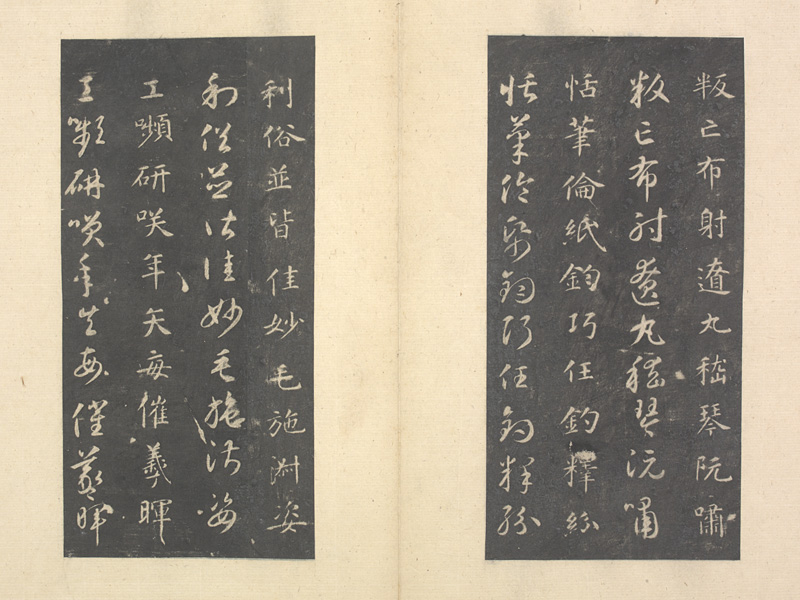 叛亡布射遼丸嵇琴阮嘯
叛亡布射遼丸嵇琴阮嘯
恬筆倫紙鈞巧任釣釋紛
恬筆倫紙鈞巧任釣釋紛
利俗並皆佳妙毛施淑姿
利俗並皆佳妙毛施淑姿
工嚬研咲年矢每催羲暉
工嚬研咲年矢每催羲暉